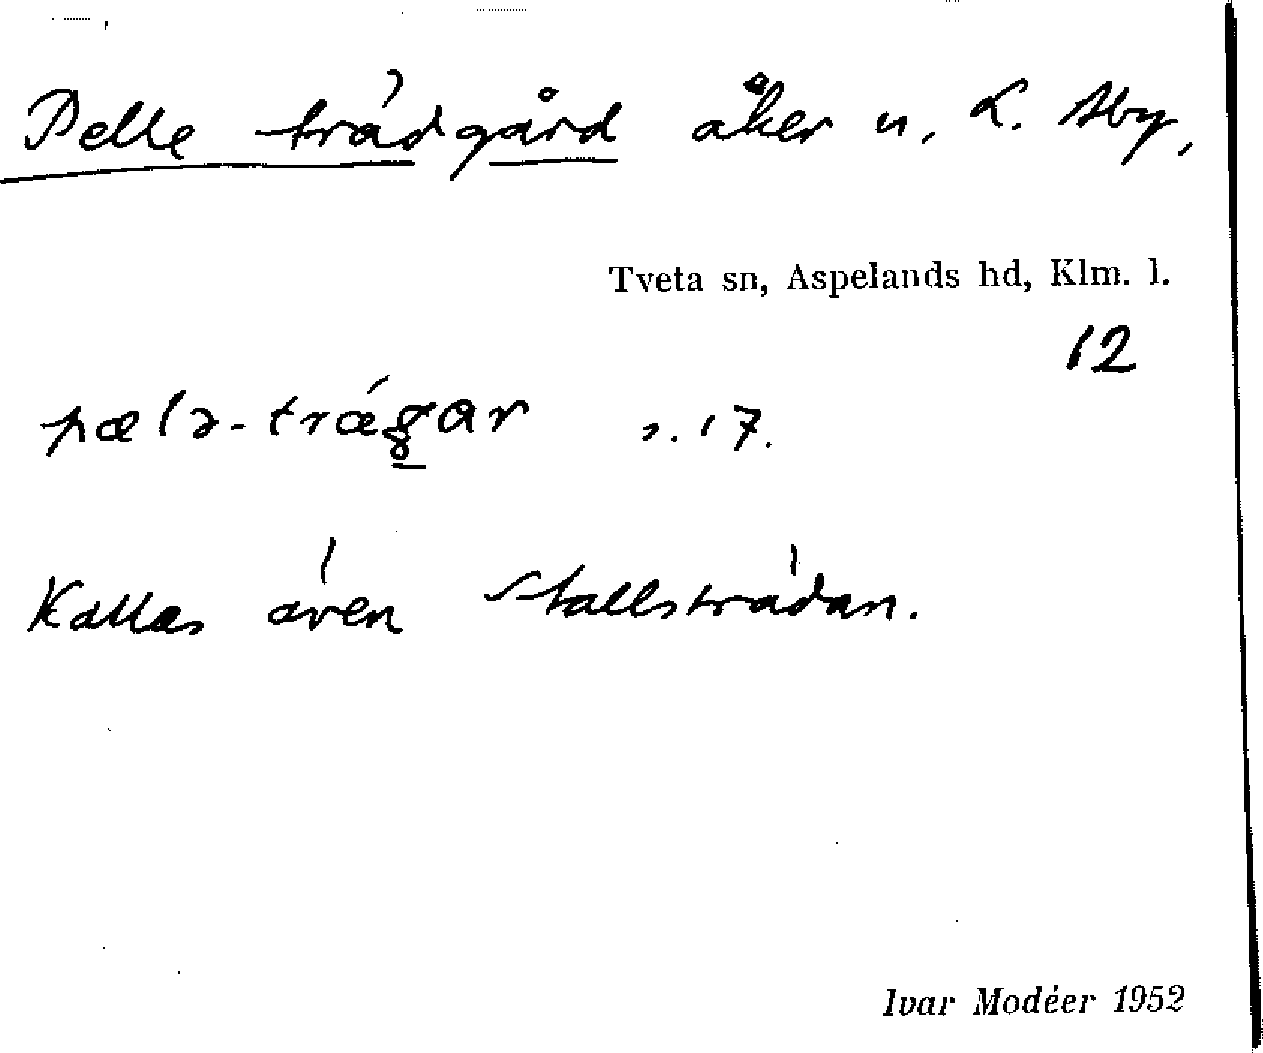 Pelle trädgård åker u. L. Aby,
Tveta sn, Aspelands hd, Klm. l.
12
pælə-trǽgar s. 17.
Kallas även Stallsträdan.
Ivar Modéer 1952